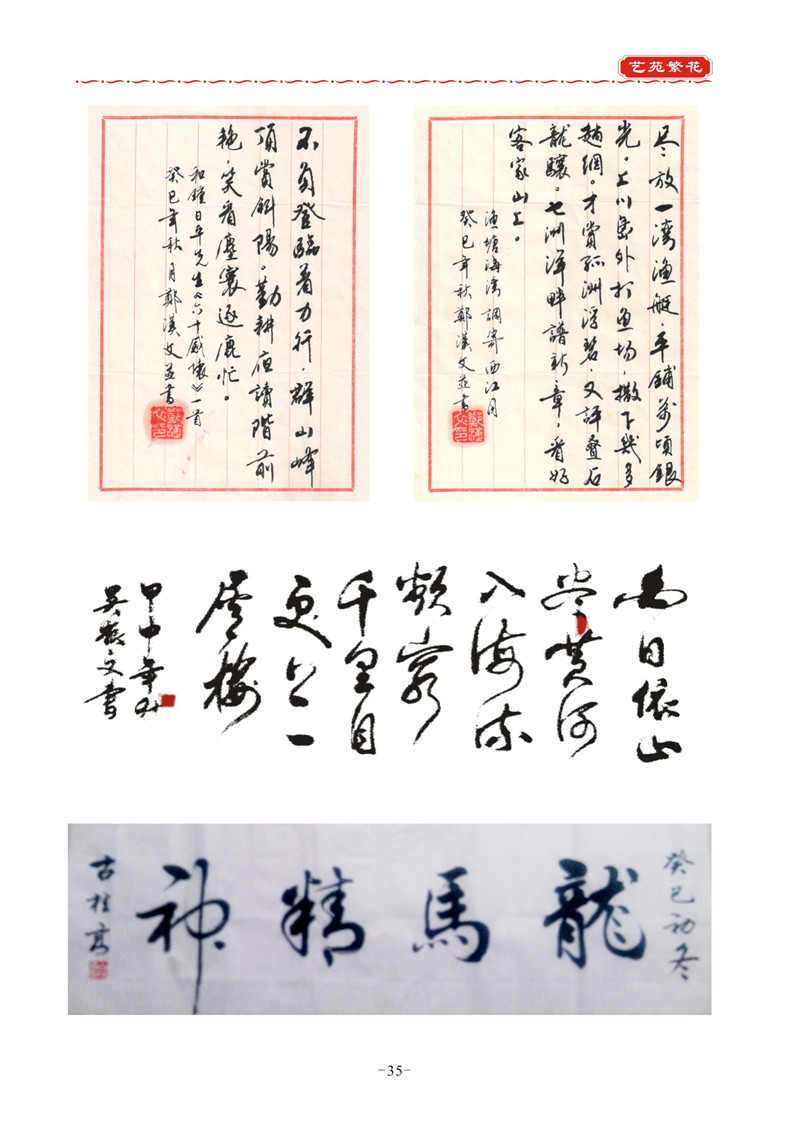 艺苑繁花
不負登臨着力行，群山峰
頂賞斜陽。勤耕應讀階前
艳，笑看塵寰逐鹿忙。
和鍾日平先生《六十感懷》一首
癸巳年秋月鄭漢文並書
尽放一湾渔艇，平鋪萬頃銀
光。上川島外打魚场，撒下幾多
趟網。才賞孤洲浮碧，又評叠石
龍驤。七洲洋畔譜新章，看好
客家山上。
渔塘海湾調寄西江月
癸巳年秋鄭漢文並書
白日依山
尽黄河
入海流
欲穷
千里目
更上一
层楼
甲申年
文書
癸巳初冬
龍馬精神
古桂
-35-